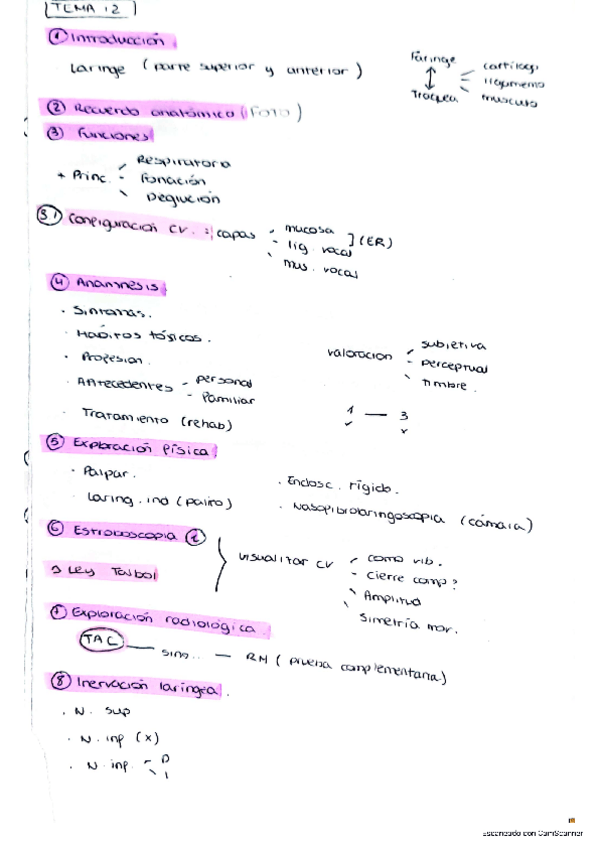 TEMA 12
① Introducción
Laringe (parte superior y anterior)
Faringe
↕
Traquea
cartílagos
ligamento
musculo
② Recuerdo anatómico (FOTO)
③ Funciones
+ Princ.
Respiratora
Fonación
Deglución
3.1 Configuración CV. : capas
mucosa
lig. vocal
] (ER)
mus. vocal
④ Anamnesis
· Síntomas.
· Hábitos tóxicos.
· Profesion.
· Antecedentes
- personal
- Familiar
· Tratamiento (rehab)
valoracion
subjetiva
perceptual
timbre.
1 — 3
⑤ Exploración física
· Palpar.
· Laring. ind (palito)
· Endosc. rígido.
· Nasofibrolaringoscopia (cámara)
⑥ Estroboscopia
Ley Talbol
visualizar CV
como vib.
Cierre comp?
Amplitud
Simetría mov.
⑦ Exploración radiológica.
TAC — sing.. — RM (prueba complementaria)
⑧ Inervación laríngea.
· N. sup
· N. inf (x)
· N. inf.
D
I
Escaneado con CamScanner